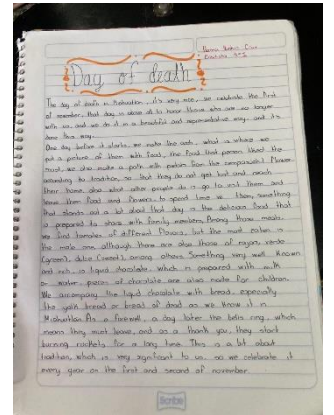 Day of death
The day of death in Michoacan, it's very nice, we celebrate the first
of november, that day is about all to honor those who are no longer
with us, and we do it in a beautiful and representative way, and it's
done this way.
One day before it starts, we make the, what is where we
put a picture of them with food, the food that person liked the
most, we also make a path with petals from the cempasuchil flower
according to tradition, so that they do not get lost and reach
their home, also what other people do is go to visit them and
leave them food and flowers, to spend time w them, something
that stands out a lot about that day is the delicious food that
is prepared to share with family members, Among those meals
we find tamales of different flavors, but the most eaten is
the mole one although there are also those of rajas, verde
(green), dulce (sweet), among others. Something very well known
and rich is liquid chocolate, which is prepared with milk
or water, pieces of chocolate are also made for children.
We accompany the liquid chocolate with bread, especially
the bread or bread of dead as we know it in
Michoacan. As a farewell, a day later the bells ring, which
means they must leave, and as a thank you, they start
burning rockets for a long time. This is a bit about
tradition, which is very significant to us, so we celebrate it
every year on the first and second of november.
Scribe